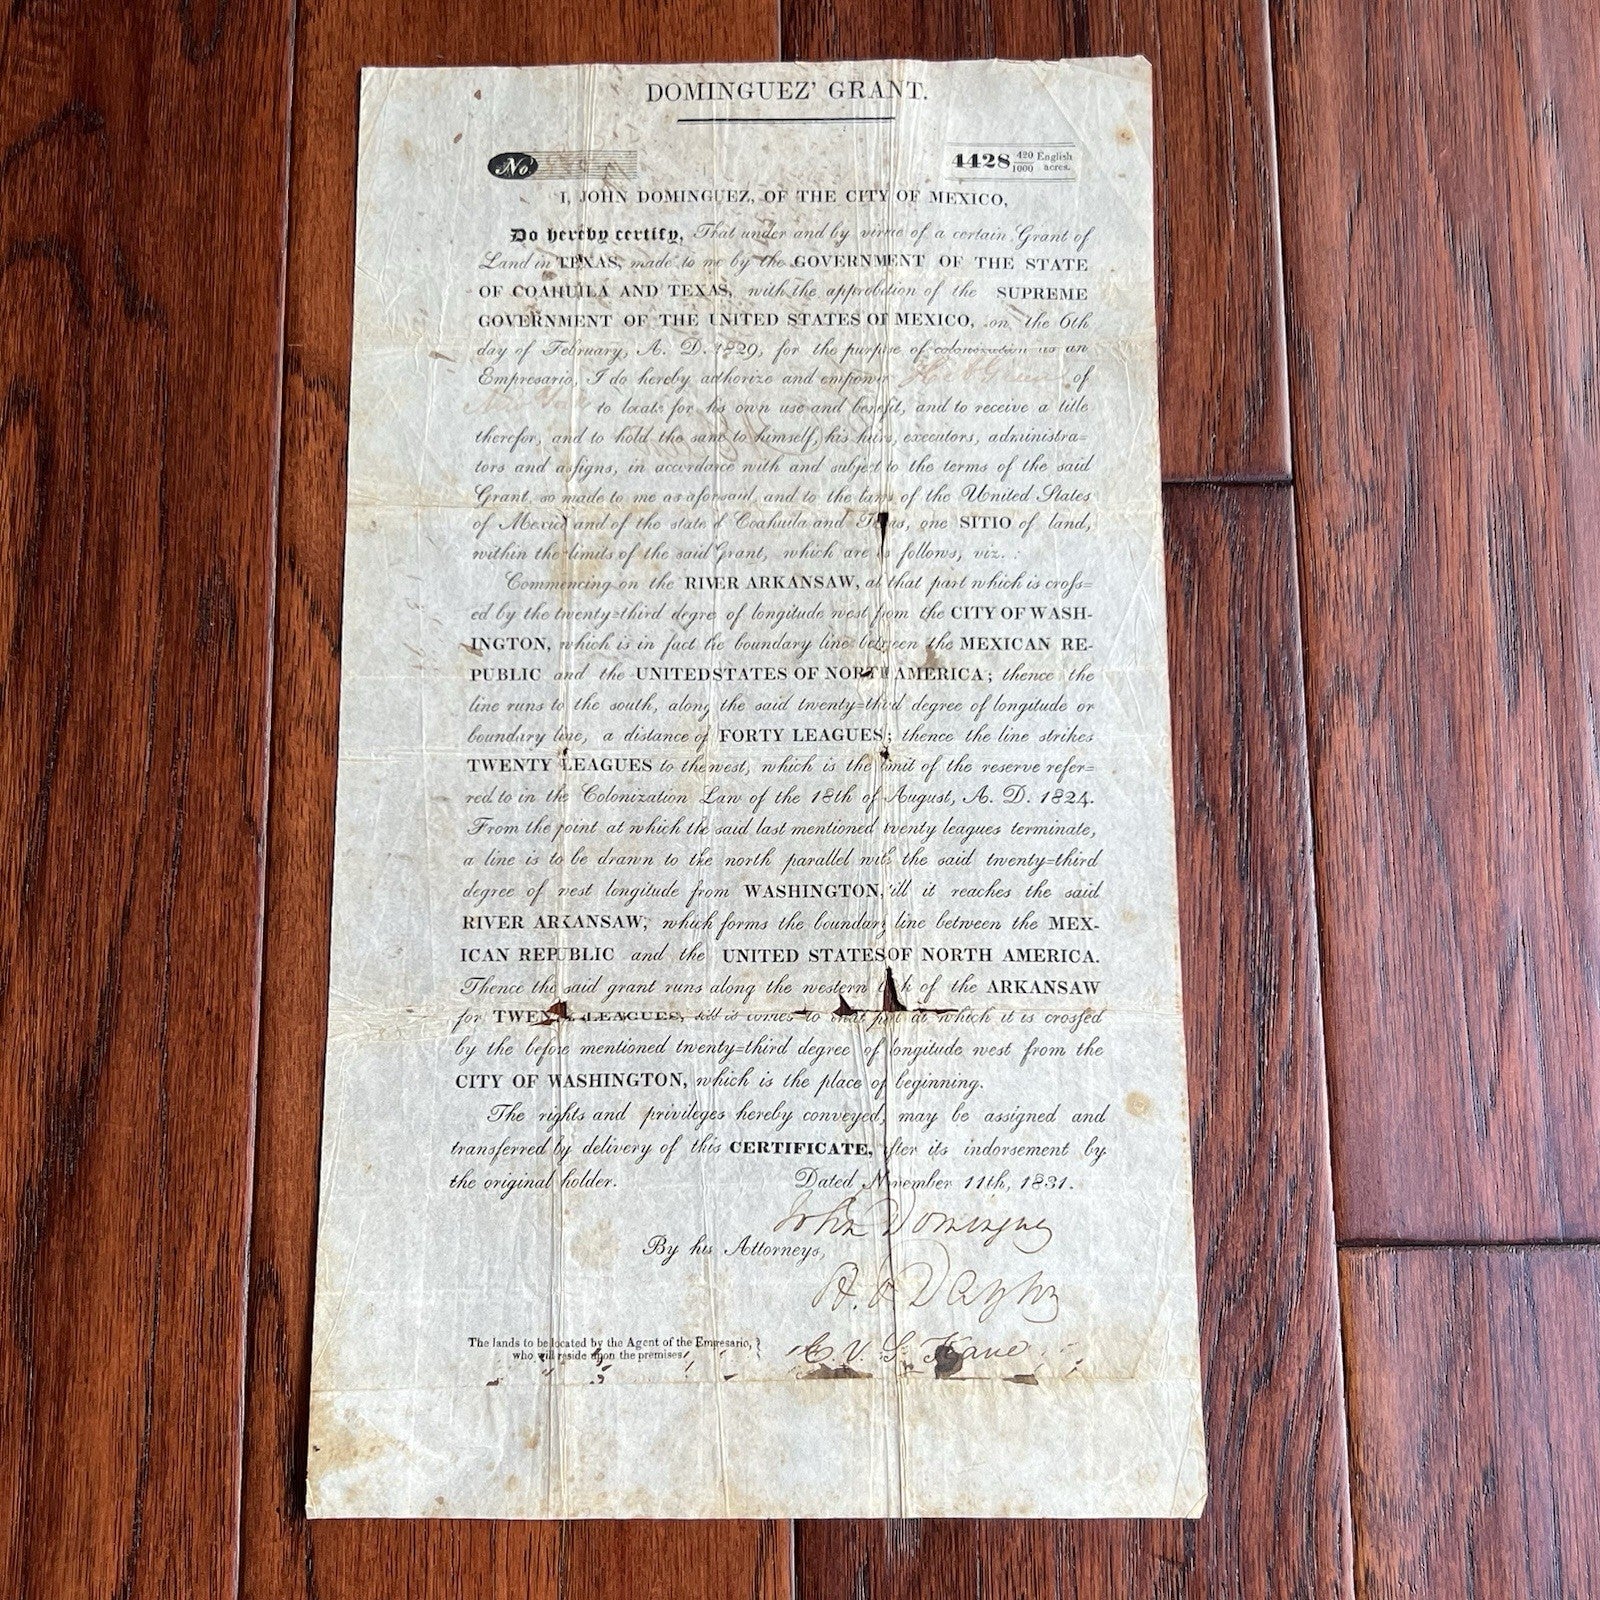 DOMINGUEZ' GRANT.
No.
4428 420/1000 English acres.
I, JOHN DOMINGUEZ, OF THE CITY OF MEXICO,
Do hereby certify, That under and by virtue of a certain Grant of
Land in TEXAS, made to me by the GOVERNMENT OF THE STATE
OF COAHUILA AND TEXAS, with the approbation of the SUPREME
GOVERNMENT OF THE UNITED STATES OF MEXICO, on the 6th
day of February, A. D. 1829, for the purpose of colonization as an
Empresario, I do hereby authorize and empower Green of
New York to locate for his own use and benefit, and to receive a title
therefor, and to hold the same to himself, his heirs, executors, administra=
tors and assigns, in accordance with and subject to the terms of the said
Grant, so made to me as aforesaid, and to the laws of the United States
of Mexico and of the state of Coahuila and Texas, one SITIO of land,
within the limits of the said Grant, which are as follows, viz. :
Commencing on the RIVER ARKANSAW, at that part which is cross=
ed by the twenty=third degree of longitude west from the CITY OF WASH-
INGTON, which is in fact the boundary line between the MEXICAN RE-
PUBLIC and the UNITED STATES OF NORTH AMERICA; thence the
line runs to the south, along the said twenty=third degree of longitude or
boundary line, a distance of FORTY LEAGUES; thence the line strikes
TWENTY LEAGUES to the west, which is the limit of the reserve refer=
red to in the Colonization Law of the 18th of August, A. D. 1824.
From the point at which the said last mentioned twenty leagues terminate,
a line is to be drawn to the north parallel with the said twenty=third
degree of west longitude from WASHINGTON, till it reaches the said
RIVER ARKANSAW, which forms the boundary line between the MEX-
ICAN REPUBLIC and the UNITED STATES OF NORTH AMERICA.
Thence the said grant runs along the western bank of the ARKANSAW
for TWENTY LEAGUES, till it comes to that part at which it is crossed
by the before mentioned twenty=third degree of longitude west from the
CITY OF WASHINGTON, which is the place of beginning.
The rights and privileges hereby conveyed, may be assigned and
transferred by delivery of this CERTIFICATE, after its indorsement by
the original holder. Dated November 11th, 1831.
John Dominguez
By his Attorneys,
The lands to be located by the Agent of the Empresario, }
who will reside upon the premises.